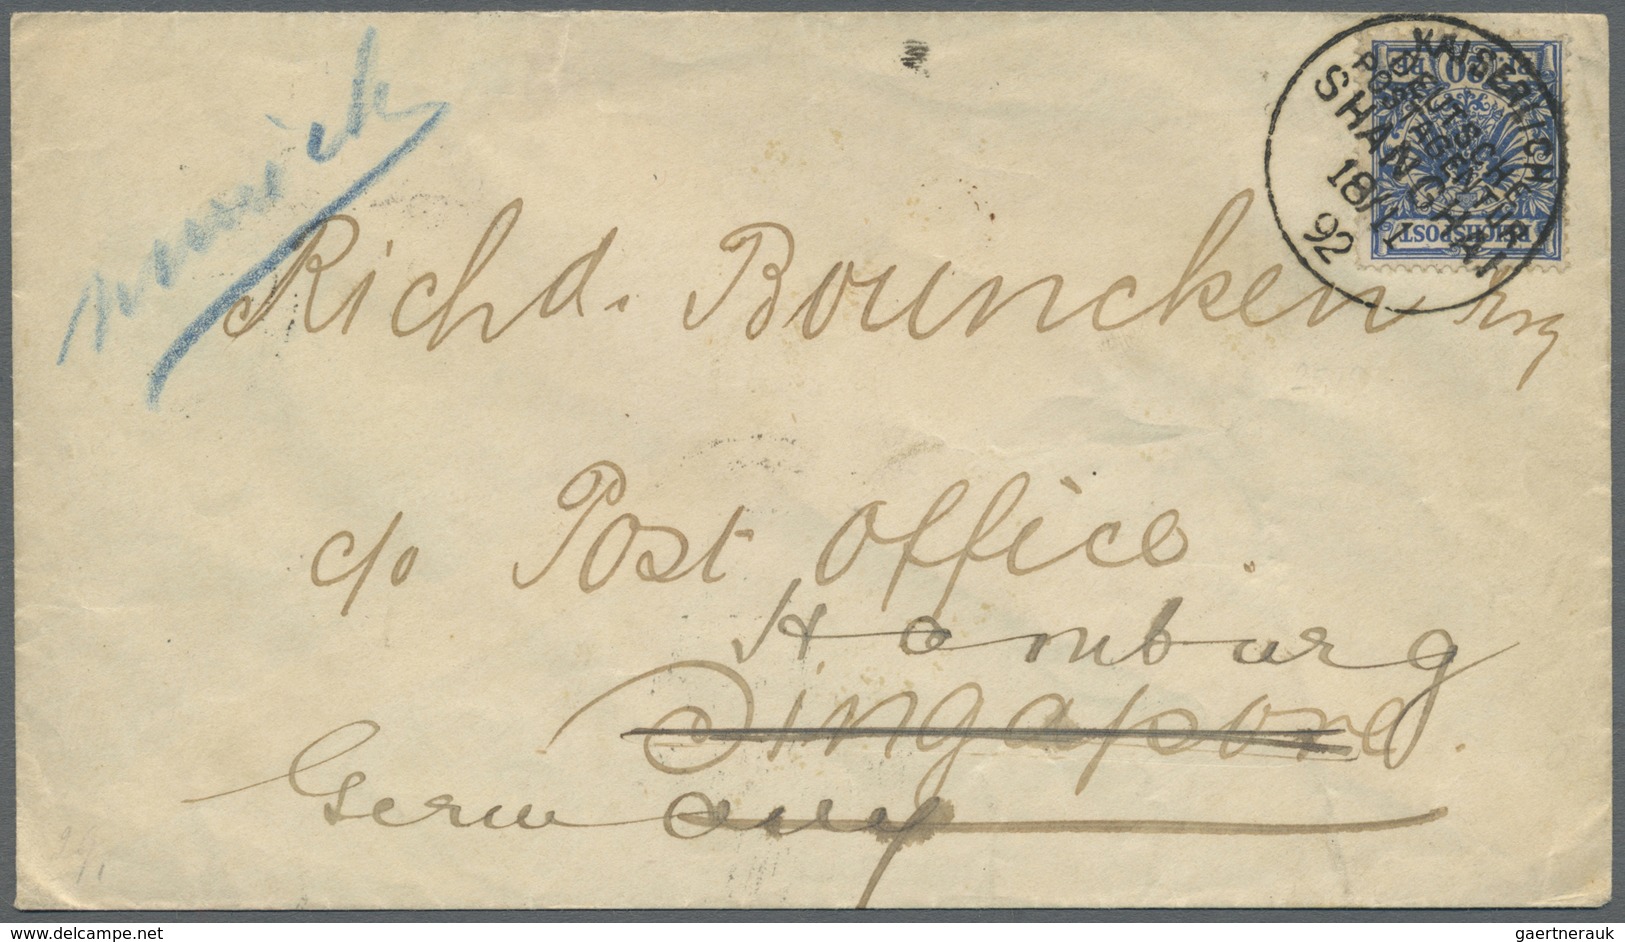 KAISERLICH
DEUTSCHE
POSTAGENTUR
SHANGHAI
18/11
92
REICHSPOST
20
Richd. Bouncken Esq
c/o Post Office.
Hamburg
Singapore.
Germany
www.delcampe.net
gaertnerauk